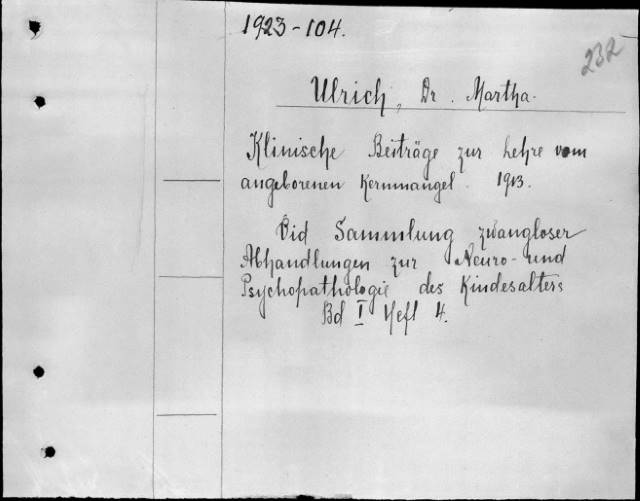 1923-104.
232
Ulrich, Dr. Martha.
Klinische Beiträge zur Lehre vom
angeborenen Kernmangel. 1913.
Vid Sammlung zwangloser
Abhandlungen zur Neuro- und
Psychopathologie des Kindesalters
Bd I Heft 4.